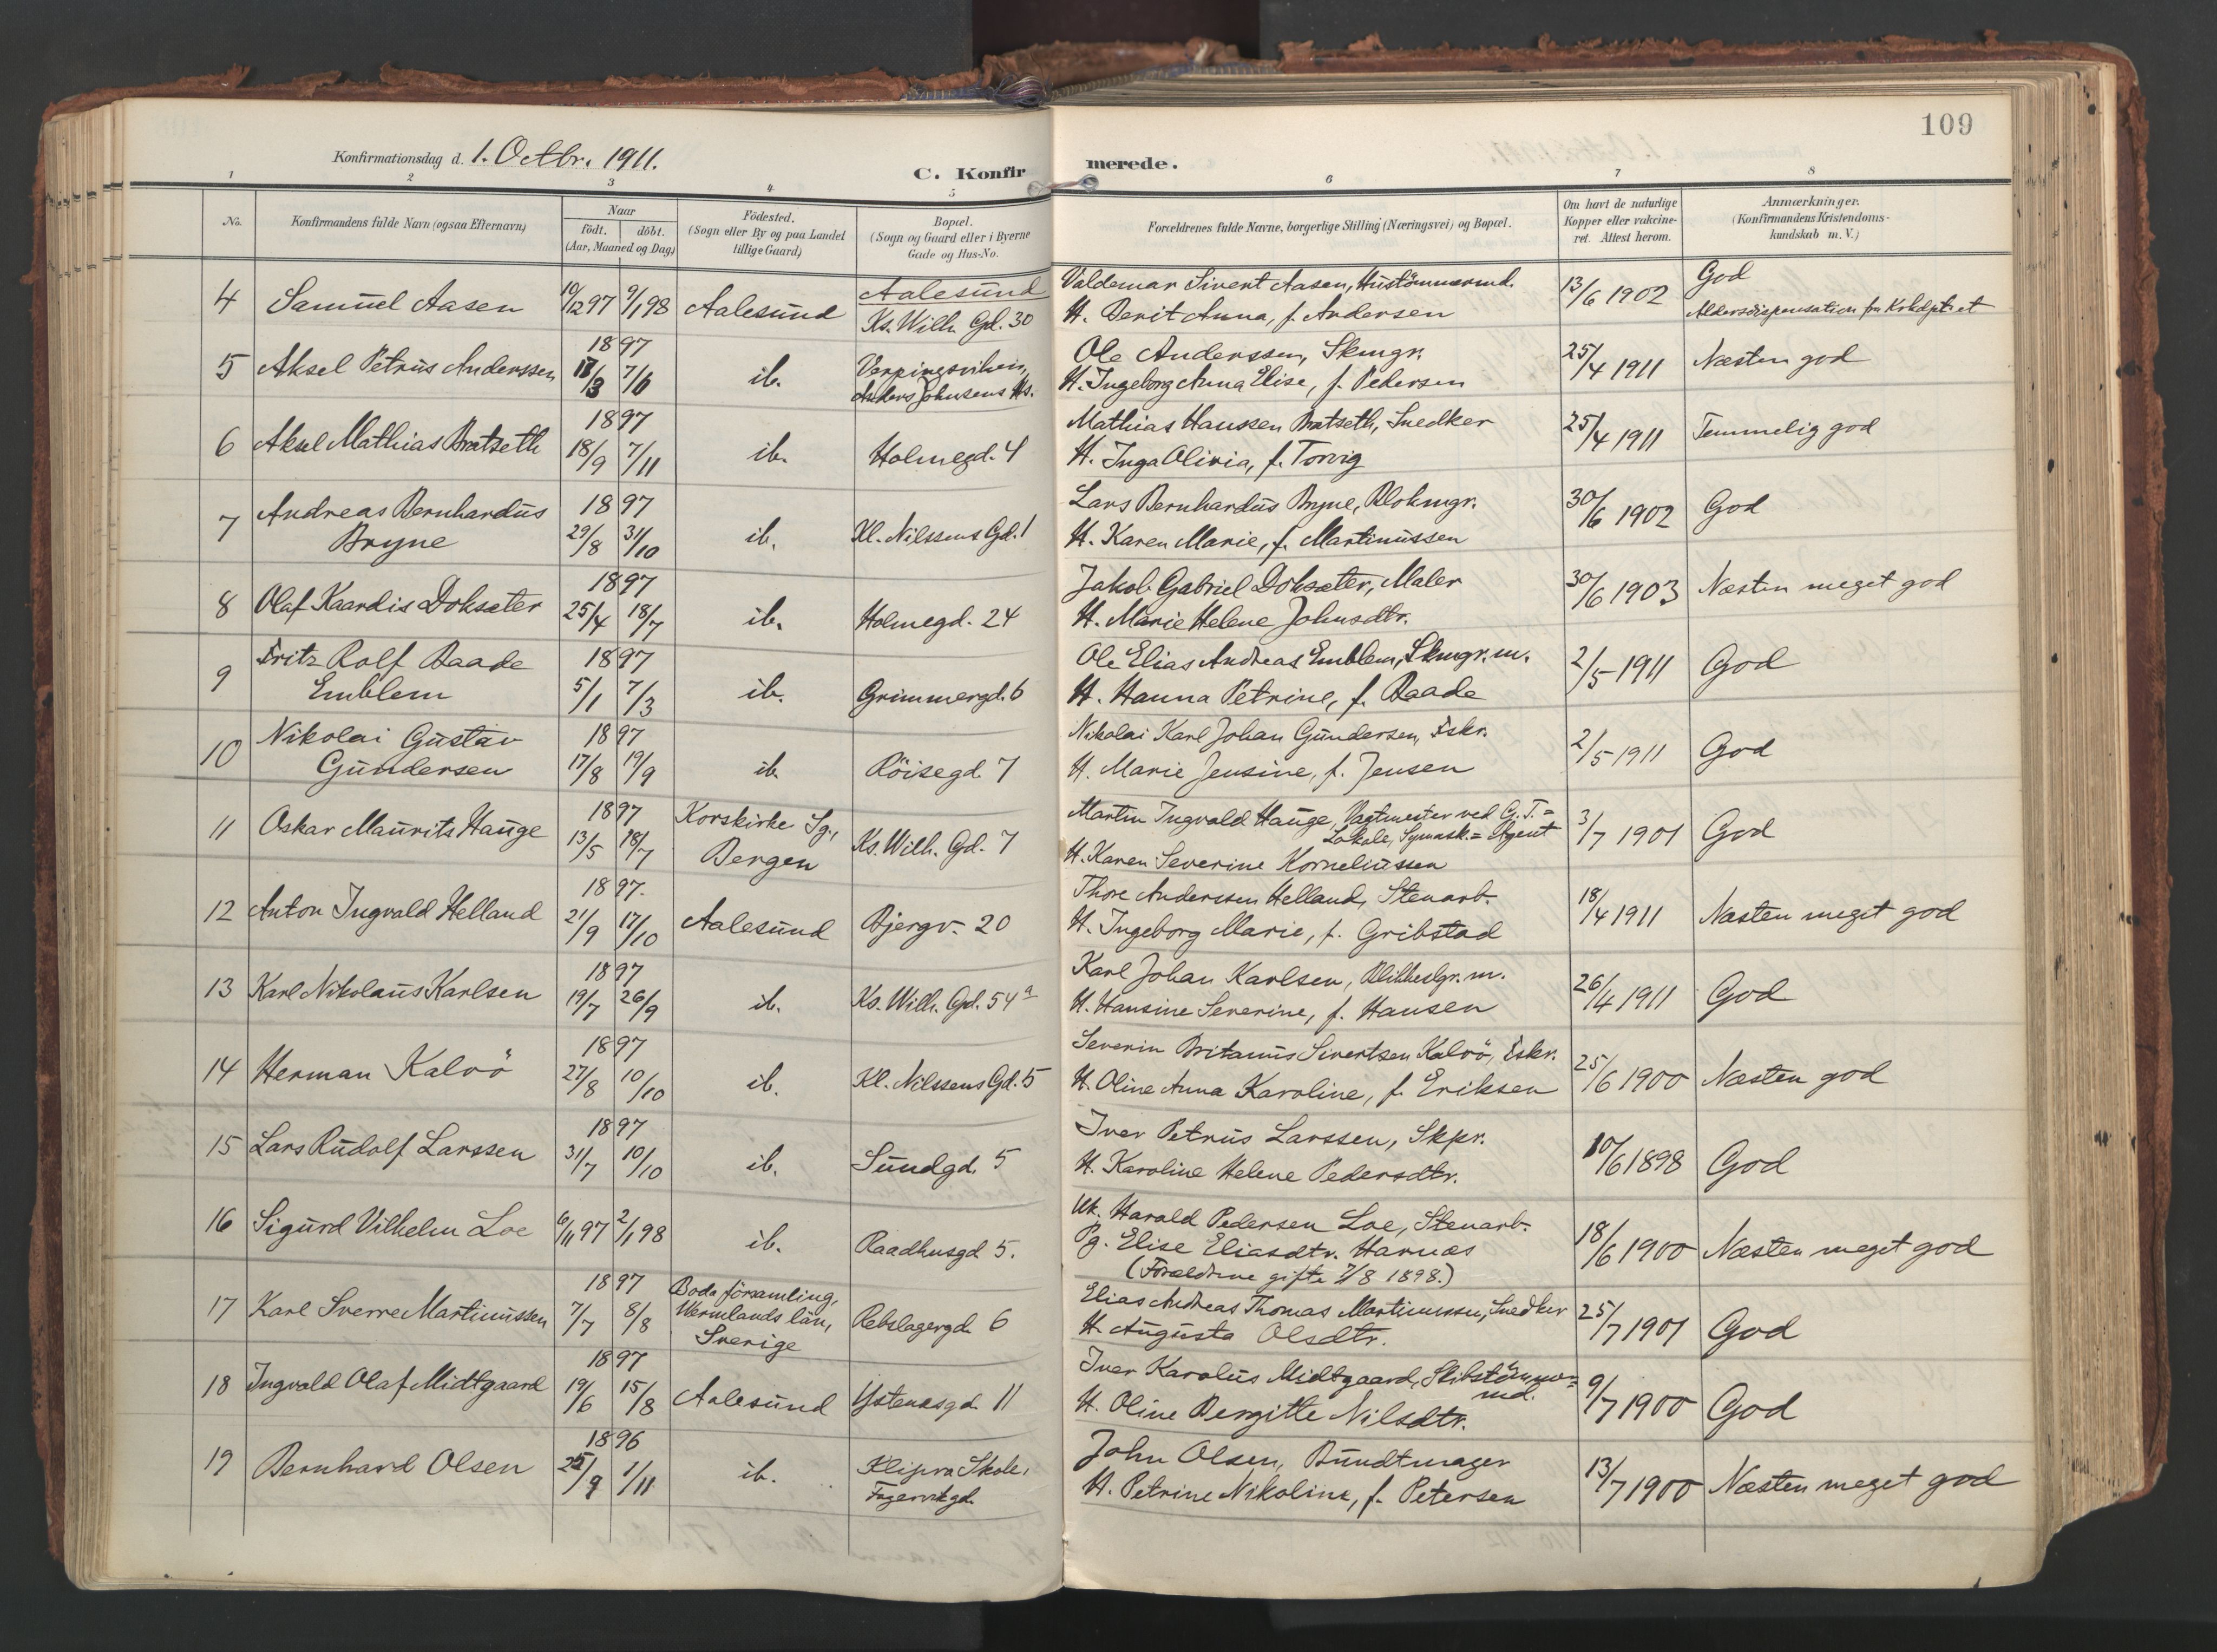 109
Konfirmationsdag d. 1. Octbr. 1911.
C. Konfirmerede.
1 2 3 4 5 6 7 8
No.
Konfirmandens fulde Navn (ogsaa Efternavn)
Naar
födt. döbt.
(Aar, Maaned og Dag)
Födested.
(Sogn eller By og paa Landet
tillige Gaard)
Bopæl.
(Sogn og Gaard eller i Byerne
Gade og Hus-No.
Forældrenes fulde Navne, borgerlige Stilling (Næringsvei) og Bopæl.
Om havt de naturlige
Kopper eller vakcine-
ret. Attest herom.
Anmærkninger.
(Konfirmandens Kristendoms-
kundskab m. V.)
4 Samuel Aasen 10/12 97 9/1 98 Aalesund
Aalesund
Ks. Wilh. Gd. 30
Valdemar Sivert Aasen, Hustömmermd.
H. Berit Anna, f. Andersen
13/6 1902
God
Aldersdispensation fra Krkdpt. et
5 Aksel Petrus Anderssen
1897
18/3 7/6
ib.
Verpingsviken,
Anders Johnsens Hs.
Ole Anderssen, Skmgr.
H. Ingeborg Anna Elise, f. Pedersen
25/4 1911
Næsten god
6 Aksel Mathias Bratseth
1897
18/9 7/11
ib.
Holmegd. 4
Mathias Hanssen Bratseth, Snedker
H. Inga Olivia, f. Torvig
25/4 1911
Temmelig god
7 Andreas Bernhardus
Bryne
1897
29/8 31/10
ib.
Kl. Nilssens Gd. 1
Lars Bernhardus Bryne, Blokmgr.
H. Karen Marie, f. Martinussen
30/6 1902
God
8 Olaf Kaardis Doksæter
1897
25/4 18/7
ib.
Holmegd. 24
Jakob Gabriel Doksæter, Maler
H. Marie Helene Johnsdtr.
30/6 1903
Næsten meget god
9 Fritz Rolf Baade
Emblem
1897
5/1 7/3
ib.
Grimmergd. 6
Ole Elias Andreas Emblem, Skmgr. m.
H. Hanna Petrine, f. Baade
2/5 1911
God
10 Nikolai Gustav
Gundersen
1897
17/8 19/9
ib.
Röisegd. 7
Nikolai Karl Johan Gundersen, Fskr.
H. Marie Jensine, f. Jensen
2/5 1911
God
11 Oskar Maurits Hauge
1897
13/5 18/7
Korskirke Sg.,
Bergen
Ks. Wilh. Gd. 7
Martin Ingvald Hauge, Vagtmester ved G. T.=
Lokale, Symask.= Agent
H. Karen Severine Korneliussen
3/7 1901
God
12 Anton Ingvald Helland
1897.
21/9 17/10
Aalesund
Bjergv. 20
Thore Anderssen Helland, Stenarb.
H. Ingeborg Marie, f. Gribstad
18/4 1911
Næsten meget god
13 Karl Nikolaus Karlsen
1897
19/7 26/9
ib.
Ks. Wilh. Gd. 54a
Karl Johan Karlsen, Blikkslgr. m.
H. Hansine Severine, f. Hansen
26/4 1911
God
14 Herman Kalvö
1897
27/8 10/10
ib.
Kl. Nilssens Gd. 5
Severin Britanus Sivertsen Kalvö, Fskr.
H. Oline Anna Karoline, f. Eriksen
25/6 1900
Næsten god
15 Lars Rudolf Larssen
1897
31/7 10/10
ib.
Sundgd. 5
Iver Petrus Larssen, Skpr.
H. Karoline Helene Pedersdtr.
10/6 1898
God
16 Sigurd Vilhelm Loe
6/11 97 2/1 98
ib.
Raadhusgd 5.
Uk. Harald Pedersen Loe, Stenarb.
Pg. Elise Eliasdtr. Harnæs
(Forældrene gifte 7/8 1898.)
18/6 1900
Næsten meget god
17 Karl Sverre Martinussen
1897
7/7 8/8
Boda församling,
Wermlands län,
Sverige
Rebslagergd. 6
Elias Andreas Thomas Martinussen, Snedker
H. Augusta Olsdtr.
25/7 1901
God
18 Ingvald Olaf Midtgaard
1897
19/6 15/8
Aalesund
Ystenesgd. 11
Iver Karolus Midtgaard, Skibstömmer=
md.
H. Oline Bergitte Nilsdtr.
9/7 1900
God
19 Bernhard Olsen
1896
25/9 1/11
ib.
Klipra Skole,
Fagervikgd.
John Olsen, Bundtmager
H. Petrine Nikoline, f. Petersen
13/7 1900
Næsten meget god